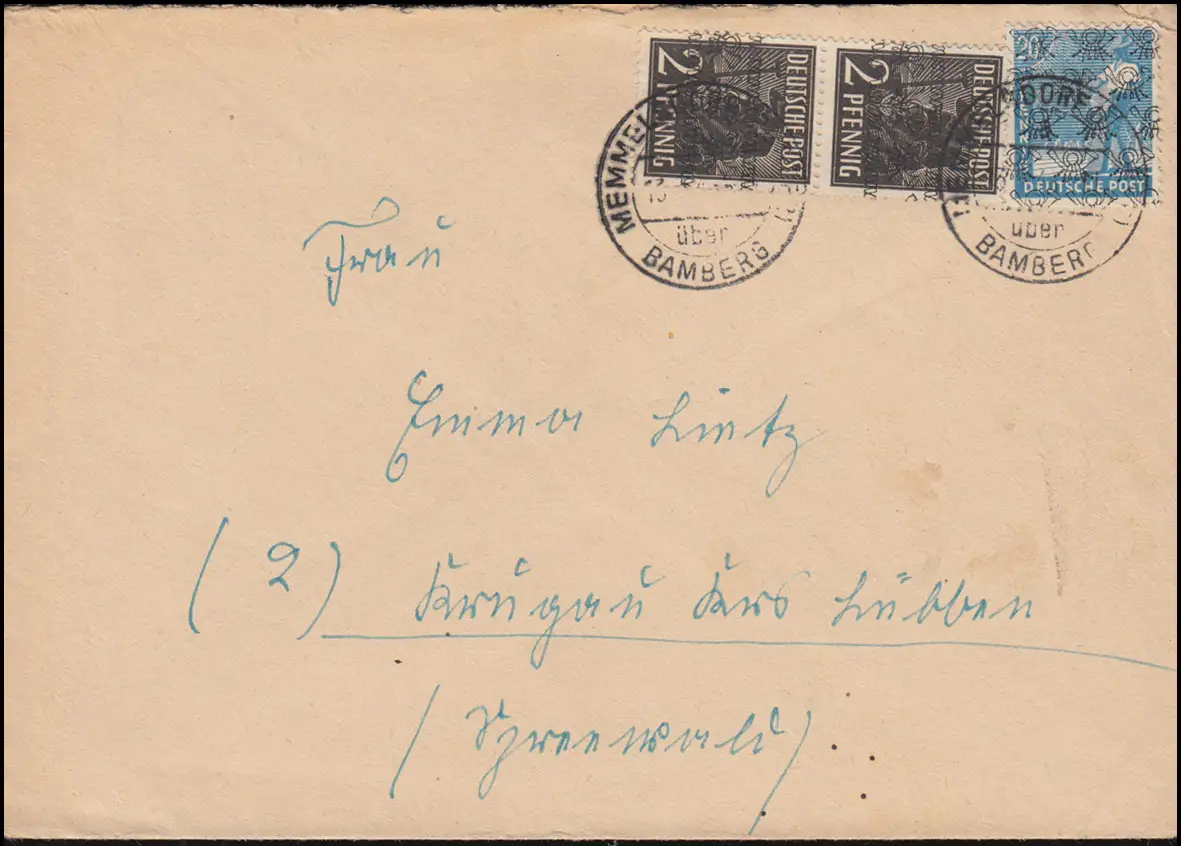 2 PFENNIG DEUTSCHE POST
2 PFENNIG DEUTSCHE POST
20 DEUTSCHE POST
über
BAMBERG
über
BAMBERG
Frau
Emma Lintz
(2) Krugau Krs Lübben
(Spreewald)